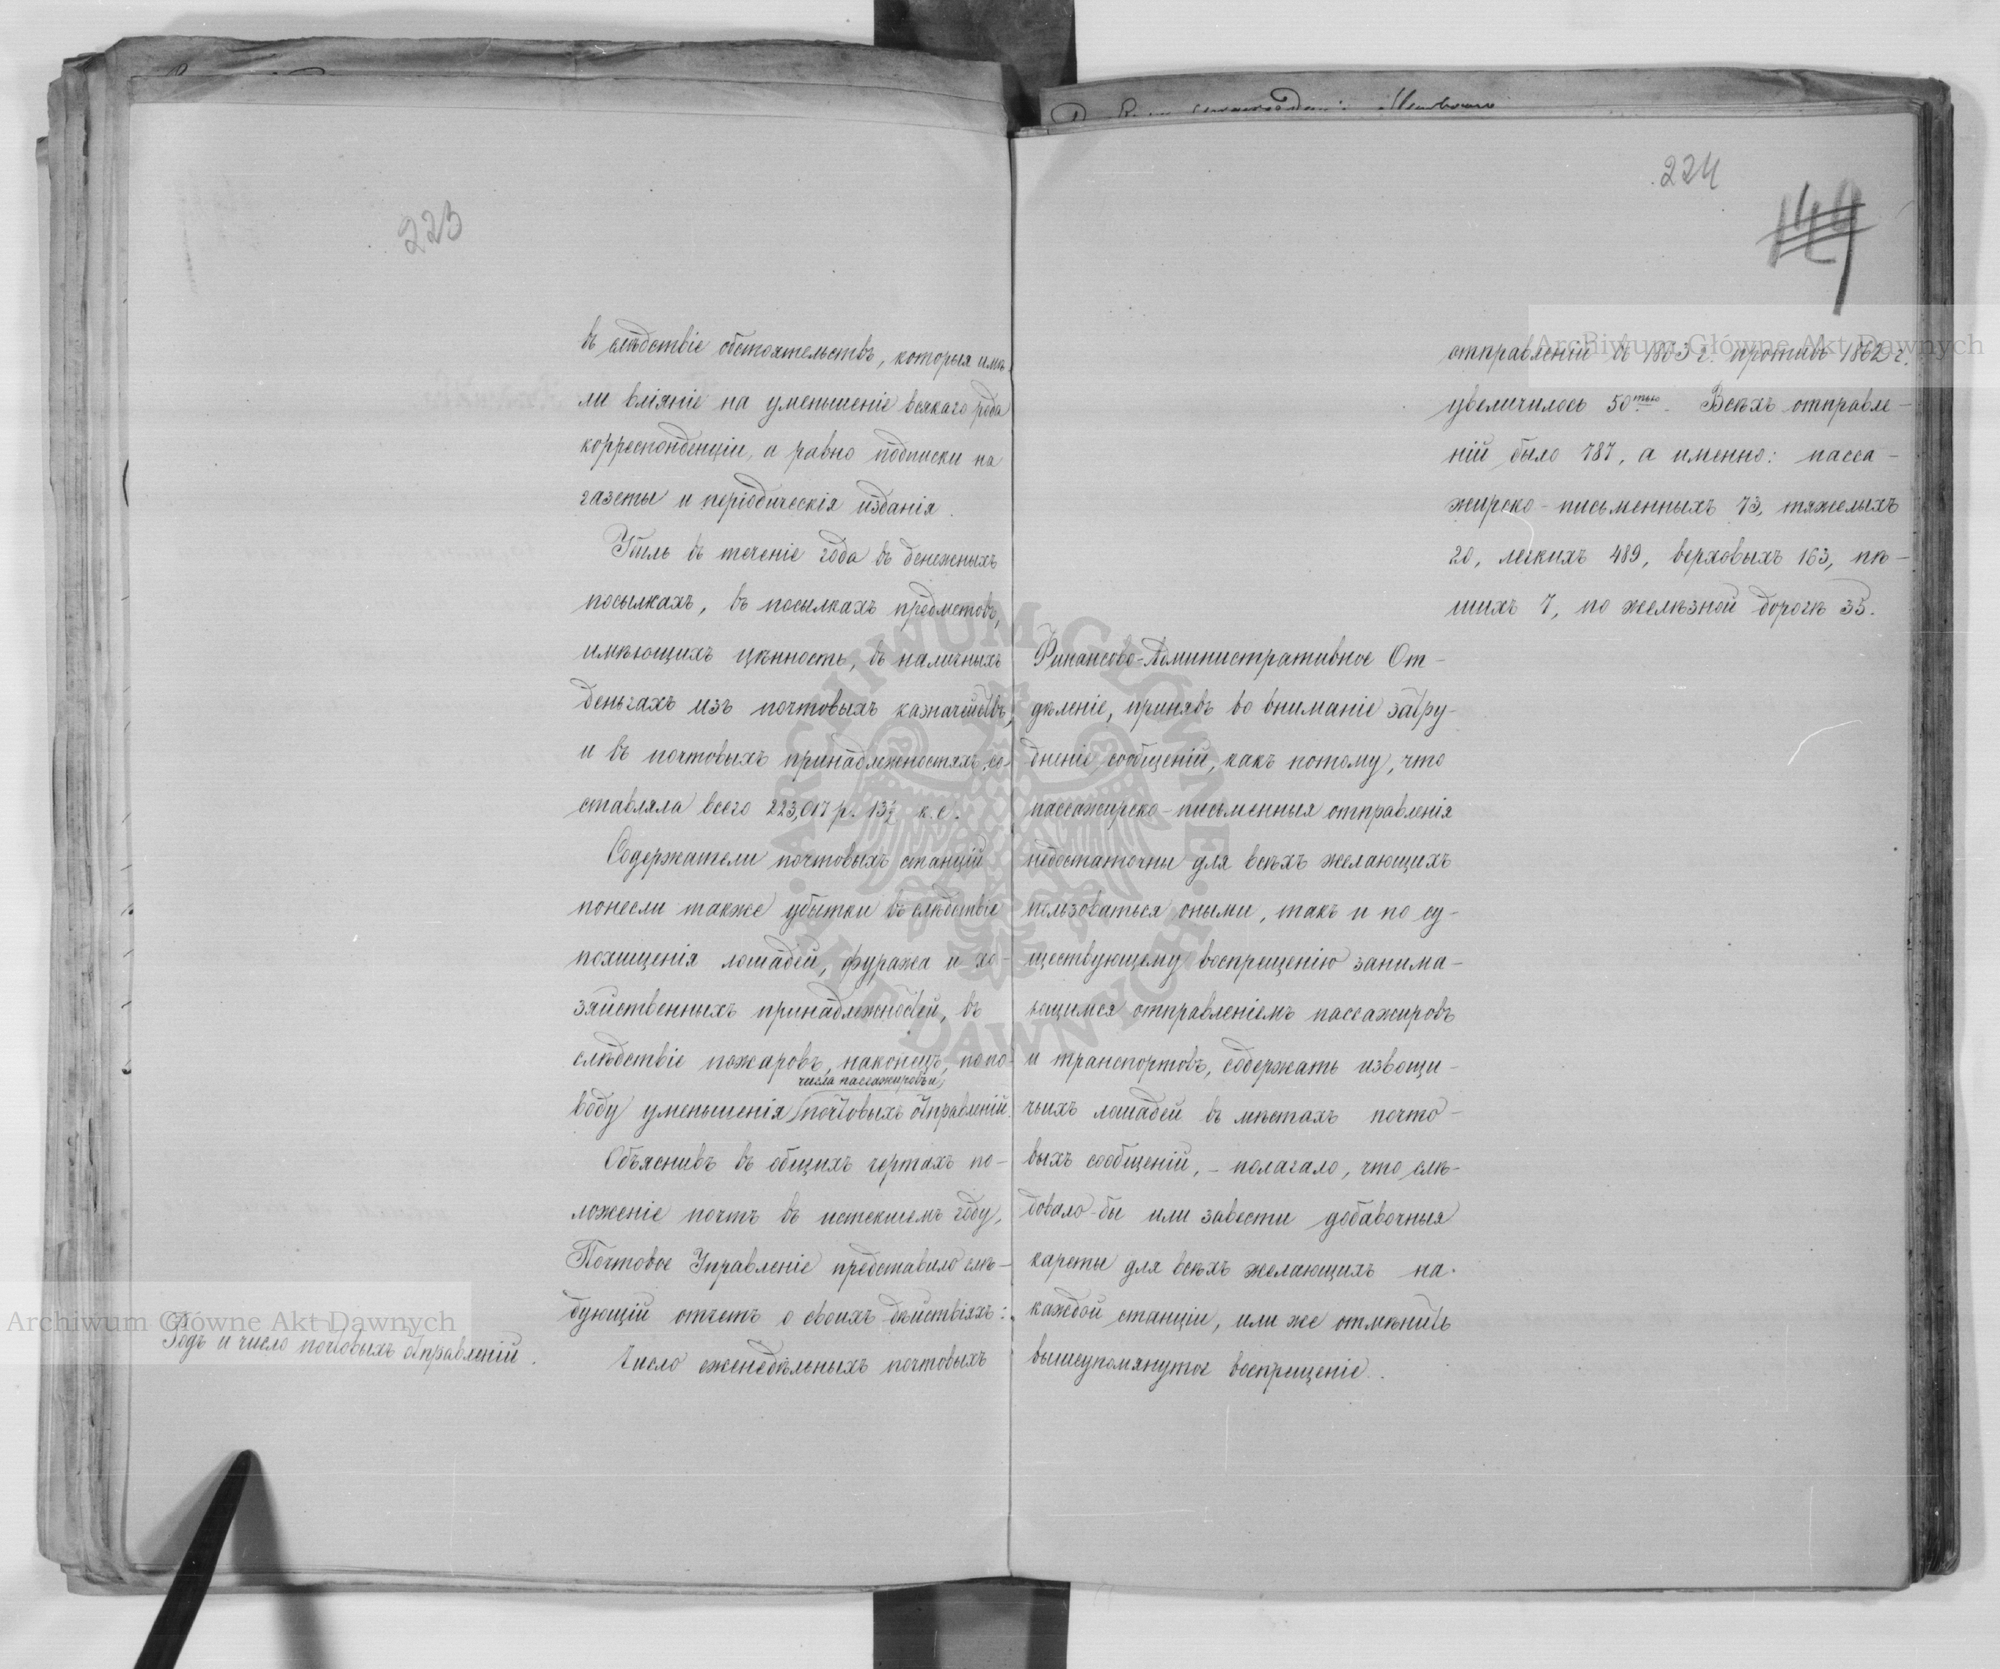 223
въ слѣдствіе обстоятельствъ, которыя имѣ-
ли вліяніе на уменьшеніе всякаго рода
корреспонденціи, а равно подписки на
газеты и періодическія изданія.
Убыль въ теченіе года въ денежныхъ
посылкахъ, въ посылкахъ предметовъ,
имѣющихъ цѣнность, въ наличныхъ
деньгахъ изъ почтовыхъ казначействъ,
и въ почтовыхъ принадлежностяхъ, со-
ставляла всего 223,017 р. 13½ к.с.
Содержатели почтовыхъ станцій
понесли также убытки въ слѣдствіе
похищенія лошадей, фуража и хо-
зяйственныхъ принадлежностей, въ
слѣдствіе пожаровъ, наконецъ, по по-
числа пассажировъ и
воду уменьшенія почтовыхъ отправленій.
Объяснивъ въ общихъ чертахъ по-
ложеніе почтъ въ истекшемъ году,
Почтовое Управленіе представило слѣ-
дующій отчетъ о своихъ дѣйствіяхъ:
Родъ и число почтовыхъ отправленій.
Число еженедѣльныхъ почтовыхъ
224
149
отправленій въ 1863 г. противъ 1862 г.
увеличилось 50тью. Всѣхъ отправле-
ній было 787, а именно: пасса-
жирско-письменныхъ 73, тяжелыхъ
20, легкихъ 489, верховыхъ 163, пѣ-
шихъ 7, по желѣзной дорогѣ 35.
Финансово-Административное От-
дѣленіе, принявъ во вниманіе затру-
дненіе сообщеній, какъ потому, что
пассажирско-письменныя отправленія
недостаточны для всѣхъ желающихъ
пользоваться оными, такъ и по су-
ществующему воспрещенію занима-
ющимся отправленіемъ пассажировъ
и транспортовъ, содержать извощи-
чьихъ лошадей въ мѣстахъ почто-
выхъ сообщеній, - полагало, что слѣ-
довало-бы или завести добавочныя
кареты для всѣхъ желающихъ на
каждой станціи, или же отмѣнить
вышеупомянутое воспрещеніе.
Archiwum Główne Akt Dawnych
Archiwum Główne Akt Dawnych
ARCHIWUM GŁÓWNE AKT DAWNYCH